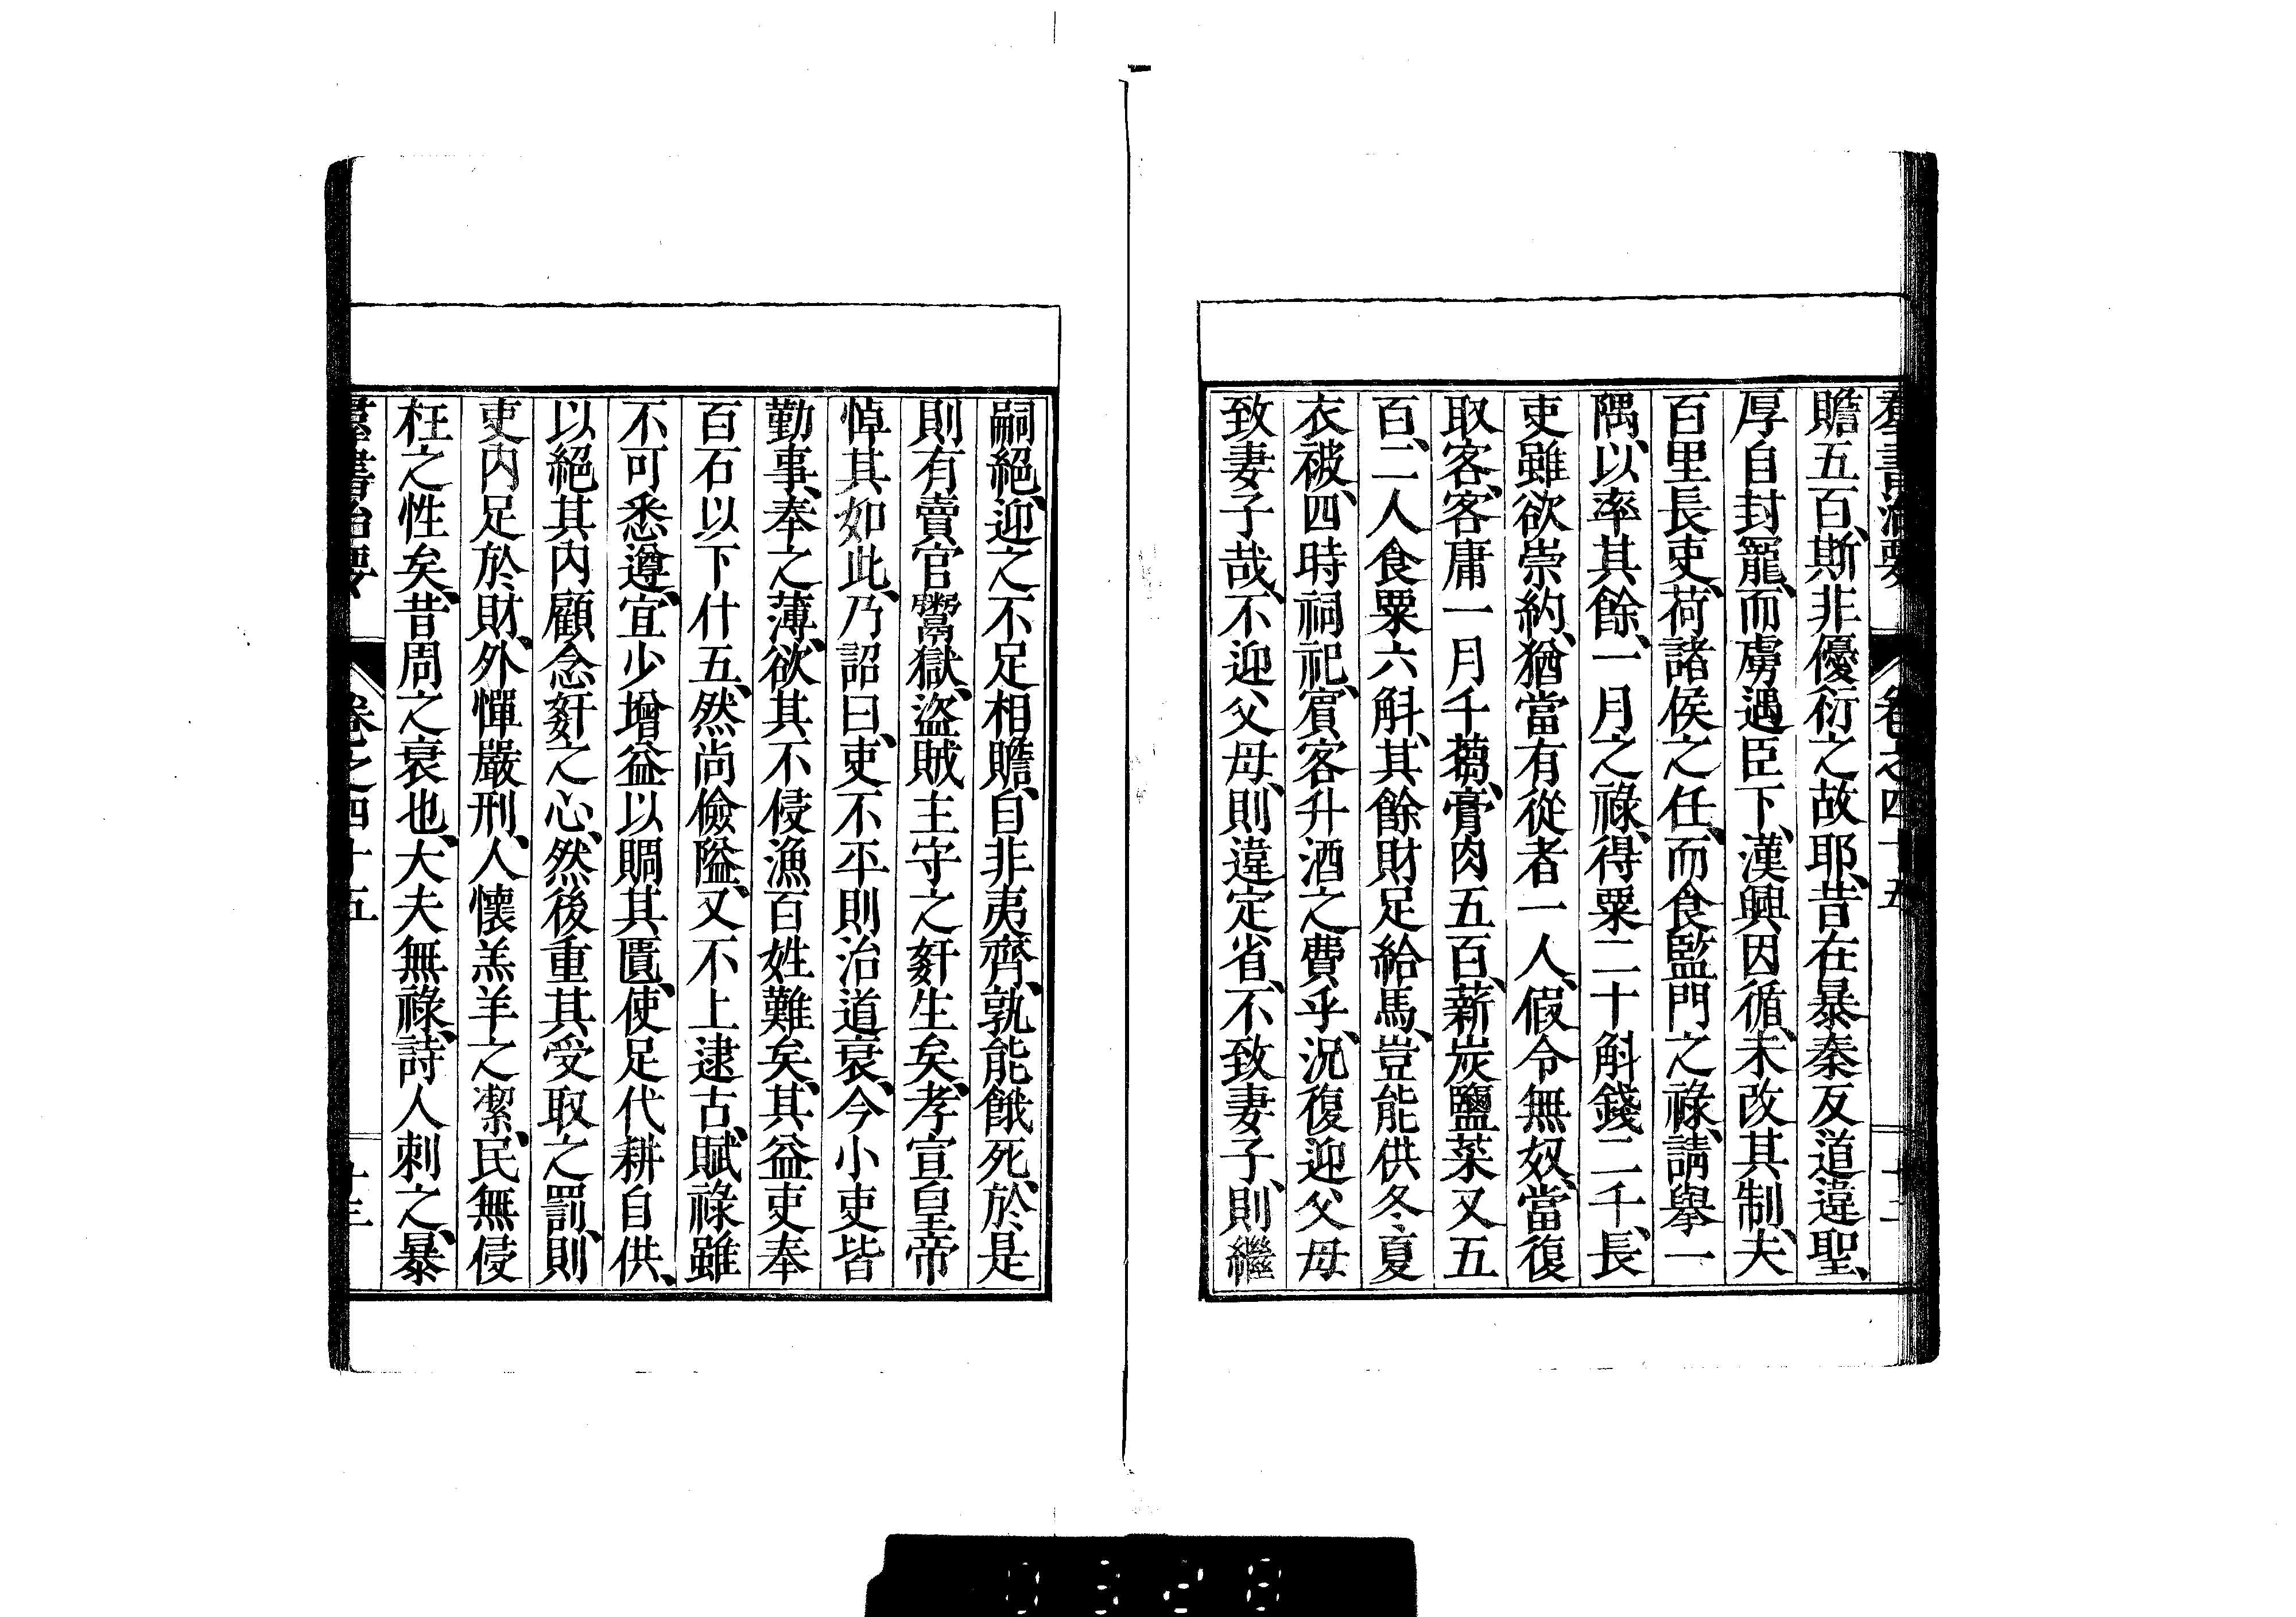 羣書治要 卷之四十五
贍五百、斯非優衍之故耶、昔在暴秦反道違聖、
厚自封寵、而虜遇臣下、漢興因循、未改其制、夫
百里長吏、荷諸侯之任、而食監門之祿、請舉一
隅、以率其餘、一月之祿、得粟二十斛錢二千、長
吏雖欲崇約、猶當有從者一人、假令無奴、當復
取客、客庸一月千、蒭、膏肉五百、薪炭鹽菜又五
百、二人食粟六斛、其餘財足給馬、豈能供冬夏
衣被、四時祠祀、賓客升酒之費乎、況復迎父母
致妻子哉、不迎父母、則違定省、不致妻子、則繼
嗣絕、迎之不足相贍、自非夷齊、孰能餓死、於是
則有賣官鬻獄、盜賊主守之姧生矣、孝宣皇帝
悼其如此、乃詔曰、吏不平則治道衰、今小吏皆
勤事、奉之薄、欲其不侵漁百姓難矣、其益吏奉
百石以下什五、然尚儉隘、又不上逮古、賦祿雖
不可悉遵、宜少增益以賙其匱、使足代耕自供、
以絕其內顧念姧之心、然後重其受取之罰、則
吏內足於財、外憚嚴刑、人懷羔羊之潔、民無侵
枉之性矣、昔周之衰也、大夫無祿、詩人刺之、暴
羣書治要 卷之四十五 十三
0328